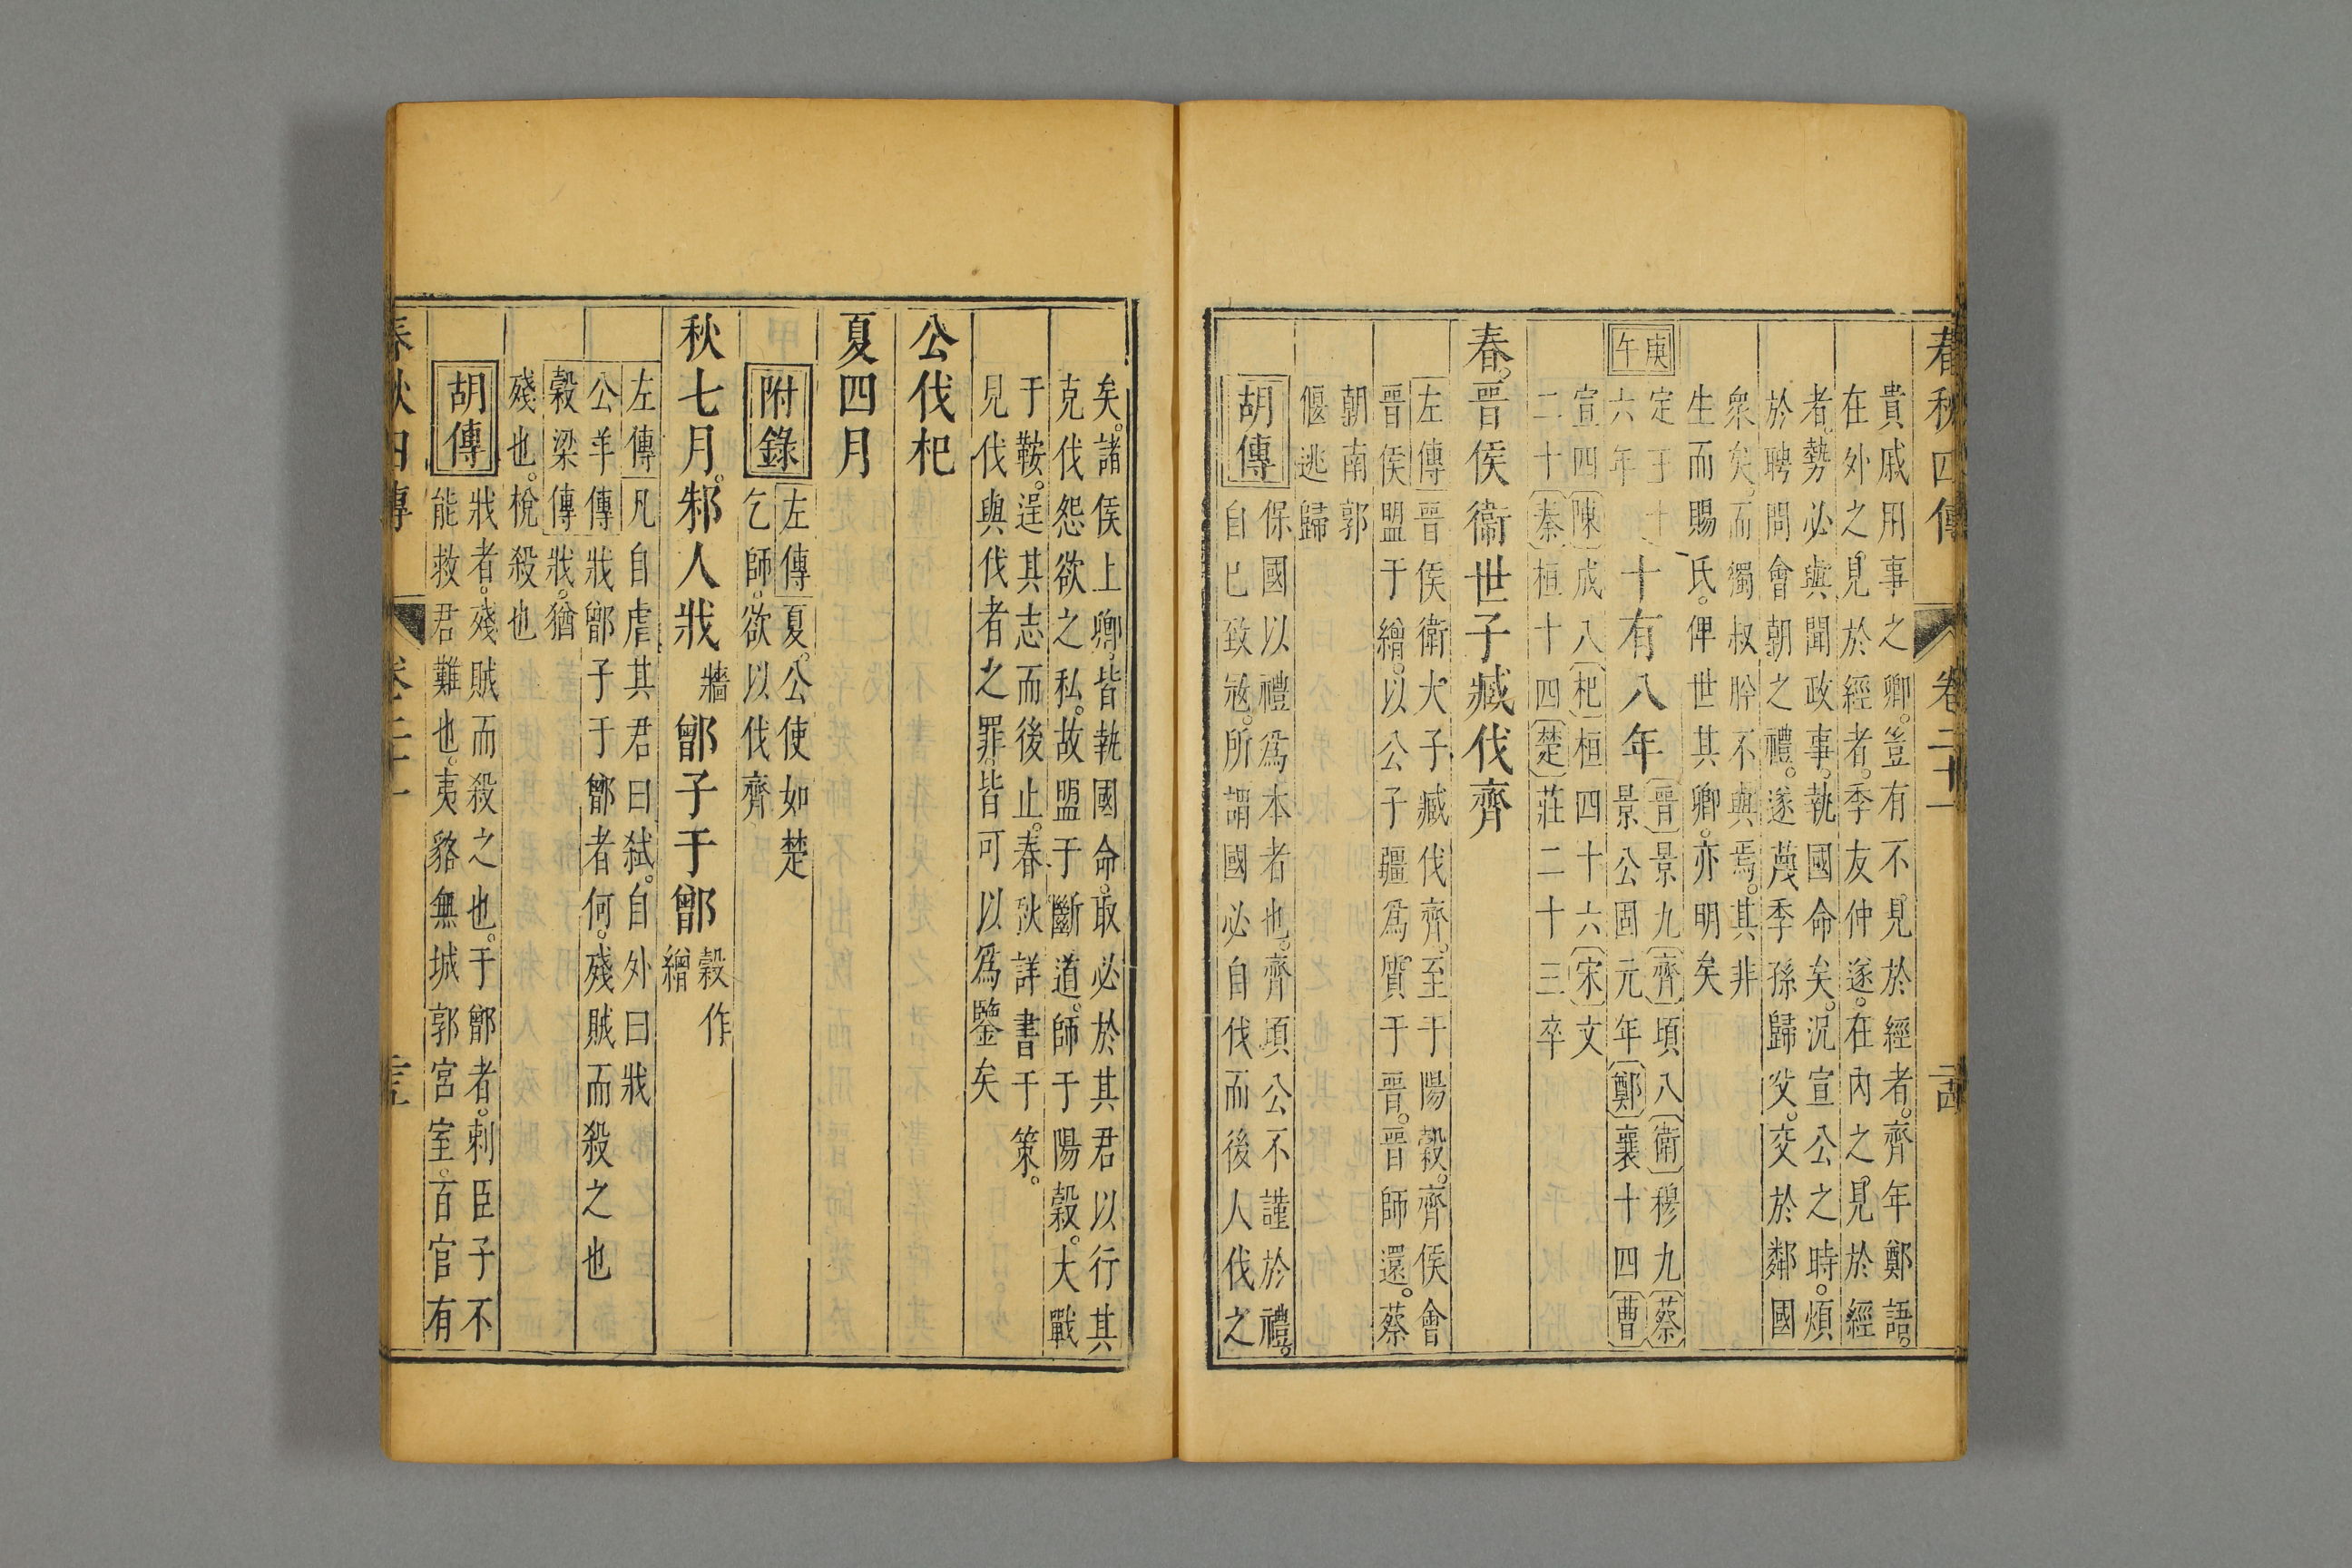 春秋四傳 卷二十一 二十四
貴戚用事之卿。豈有不見於經者。齊年鄭語。
在外之見於經者。季友仲遂。在內之見於經
者。勢必與聞政事。執國命矣。況宣公之時。煩
於聘問會朝之禮。遂蔑季孫歸父。交於鄰國
衆矣。而獨叔肸不與焉。其非
生而賜氏。俾世其卿。亦明矣
庚午
定王十六年
十有八年
晉景九齊頃八衛穆九蔡
景公固元年鄭襄十四曹
宣四陳成八杞桓四十六宋文
二十秦桓十四楚莊二十三卒
春。晉侯衛世子臧伐齊
左傳晉侯衛大子臧伐齊。至于陽穀。齊侯會
晉侯盟于繒。以公子疆爲質于晉。晉師還。蔡
朝南郭
偃逃歸
胡傳
保國以禮爲本者也。齊頃公不謹於禮。
自已致寇。所謂國必自伐而後人伐之
矣。諸侯上卿。皆執國命。取必於其君以行其
克伐怨欲之私。故盟于斷道。師于陽穀。大戰
于鞍。逞其志而後止。春秋詳書于策。
見伐與伐者之罪。皆可以爲鑒矣
公伐杞
夏四月
附錄
左傳夏。公使如楚
乞師。欲以伐齊
秋七月。邾人戕牆鄫子于鄫穀作繒
左傳凡自虐其君曰弑。自外曰戕
公羊傳戕鄫子于鄫者何。殘賊而殺之也
穀梁傳戕。猶
殘也。梲殺也
胡傳
戕者。殘賊而殺之也。于鄫者。刺臣子不
能救君難也。夷貉無城郭宮室。百官有
春秋四傳